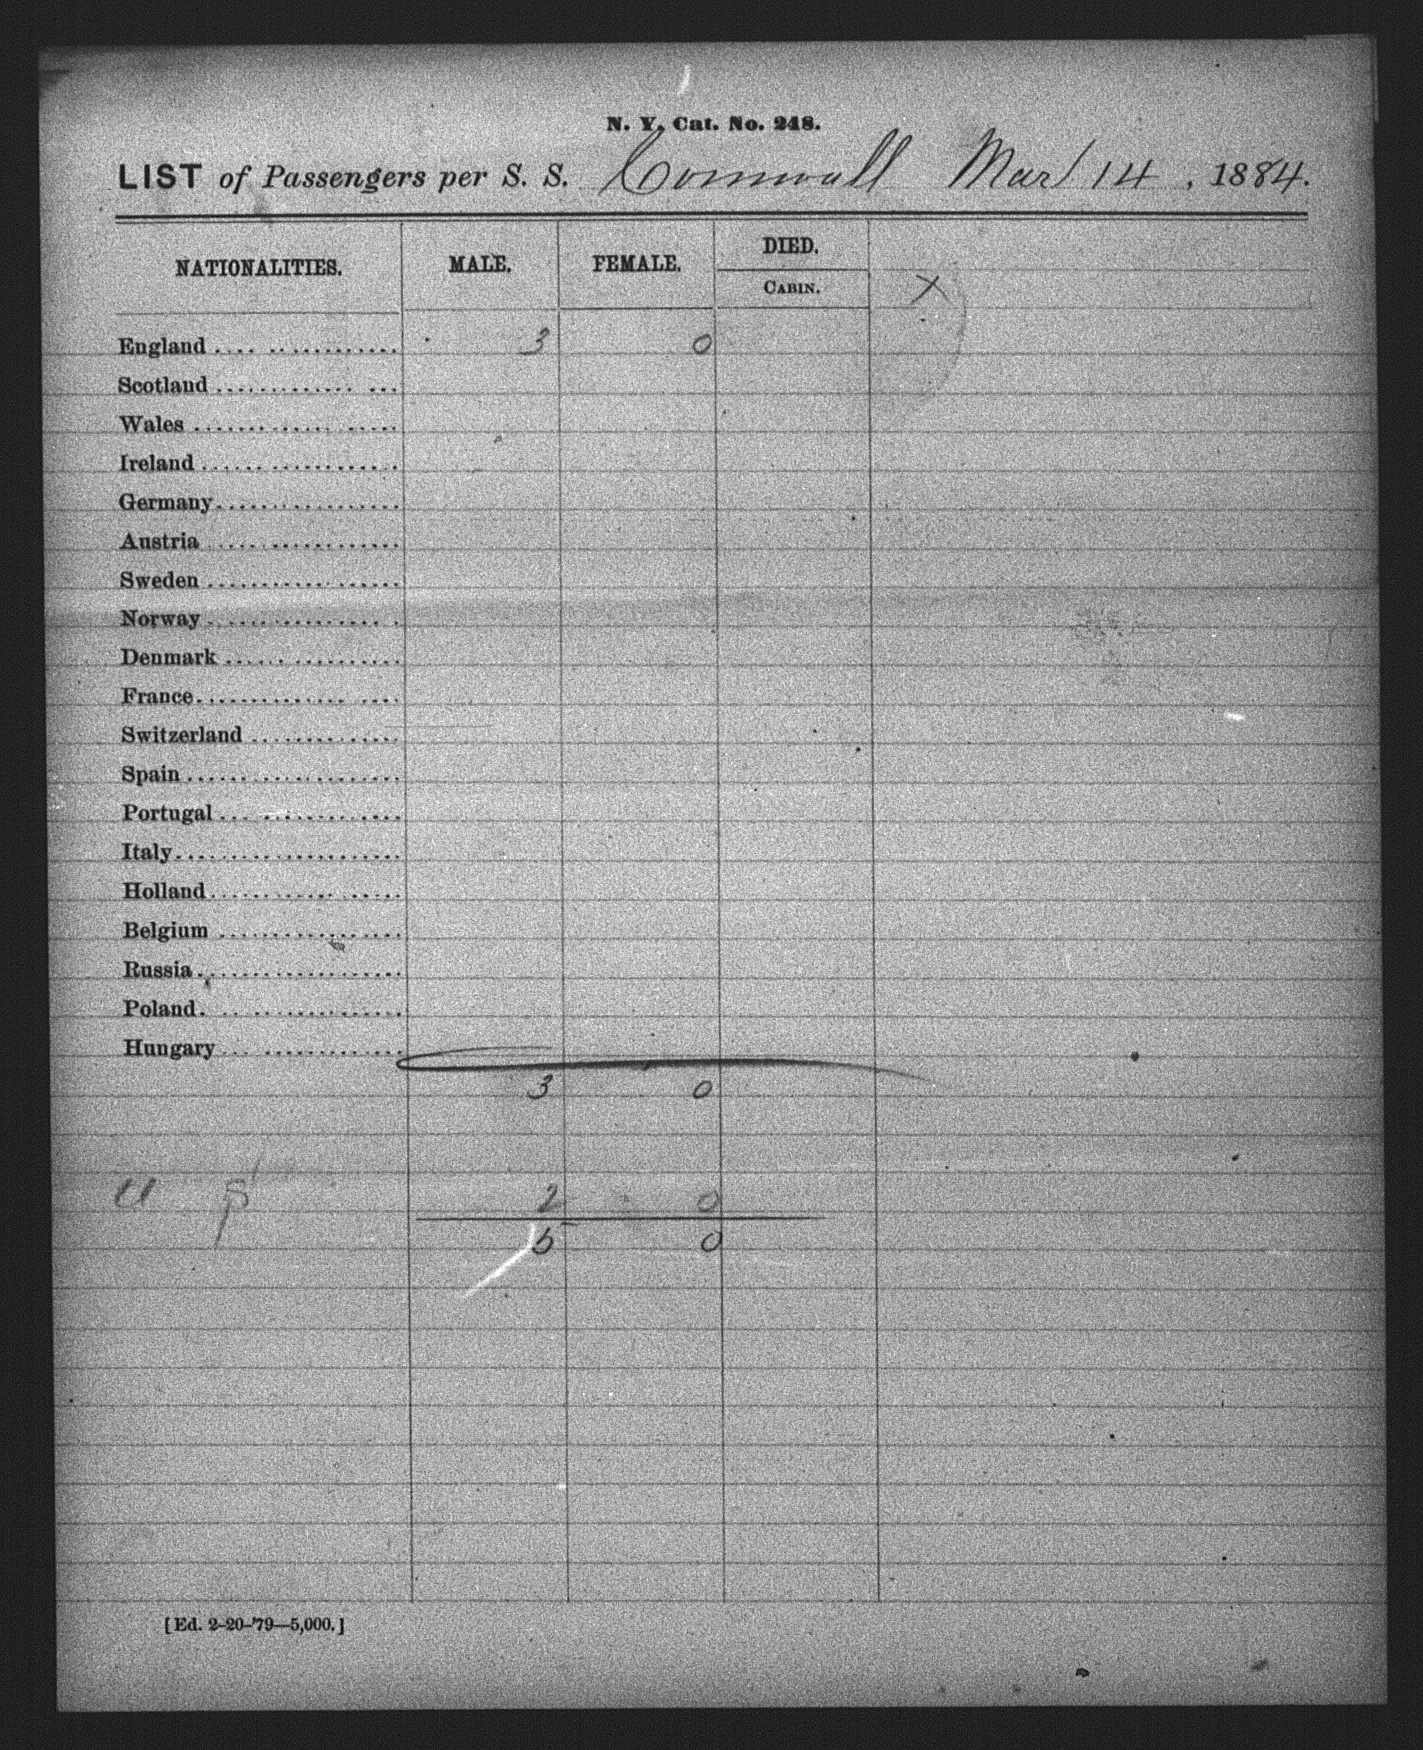 N. Y. Cat. No. 248.
LIST of Passengers per S. S. Cornwall Mar 14, 1884.
NATIONALITIES. MALE. FEMALE. DIED.
CABIN. X
England .... ............ 3 0
Scotland ............. ...
Wales ............. .....
Ireland ...... ............
Germany.................
Austria ..................
Sweden ............ ......
Norway ................ .
Denmark ...... ..........
France.............. ....
Switzerland ..............
Spain ...... .............
Portugal ... .............
Italy.....................
Holland............ .....
Belgium .................
Russia...................
Poland. .. ..............
Hungary ... .............
3 0
2 0
5 0
[Ed. 2-20-'79—5,000.]